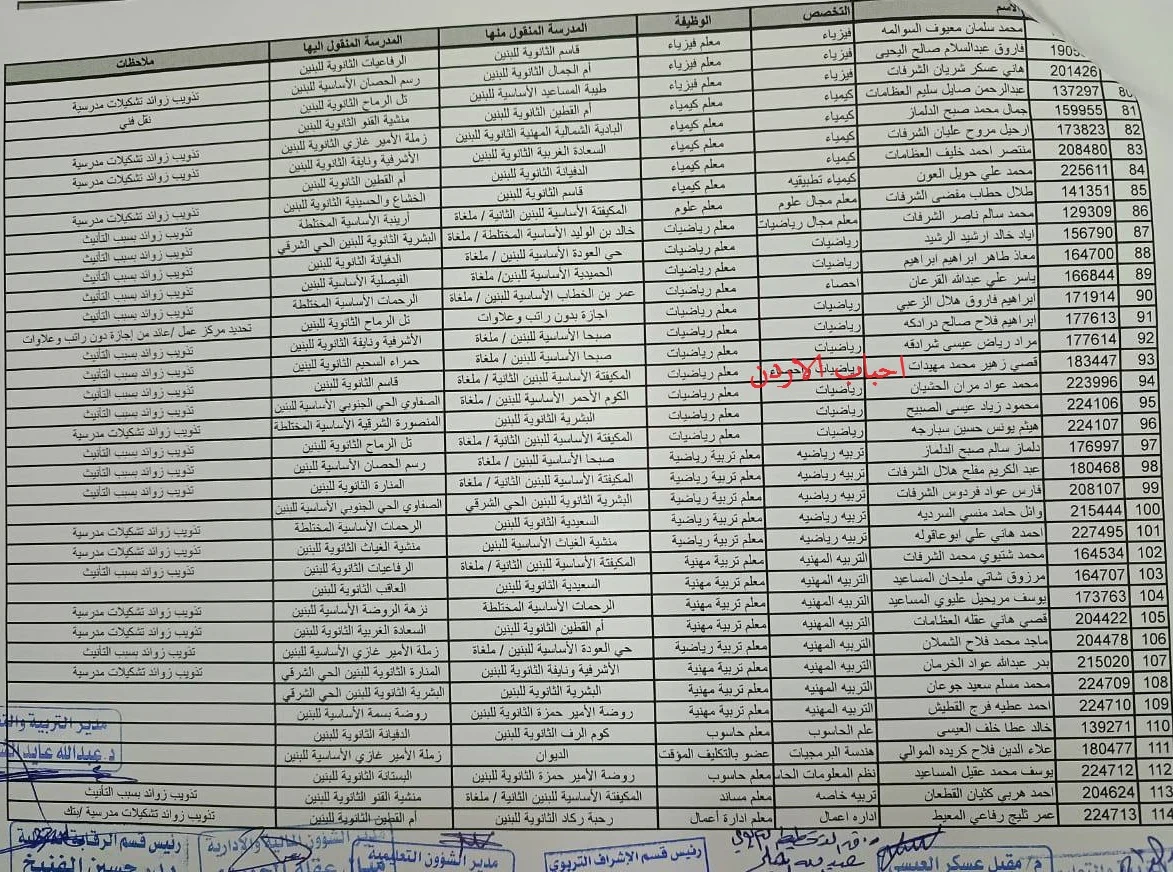 الاسم التخصص الوظيفة المدرسة المنقول منها المدرسة المنقول اليها ملاحظات
محمد سلمان معيوف السوالمه فيزياء معلم فيزياء قاسم الثانوية للبنين الرفاعيات الثانوية للبنين
1905 فاروق عبدالسلام صالح اليحيى فيزياء معلم فيزياء أم الجمال الثانوية للبنين رسم الحصان الأساسية للبنين تذويب زوائد تشكيلات مدرسية
201426 هاني عسكر شريان الشرفات فيزياء معلم فيزياء طيبة المساعيد الأساسية للبنين تل الرماح الثانوية للبنين نقل فني
80 137297 عبدالرحمن صايل سليم العظامات كيمياء معلم كيمياء أم القطين الثانوية للبنين منشية القنو الثانوية للبنين
81 159955 جمال محمد صبح الدلماز كيمياء معلم كيمياء البادية الشمالية المهنية الثانوية للبنين زملة الأمير غازي الثانوية للبنين تذويب زوائد تشكيلات مدرسية
82 173823 ارحيل مروح عليان الشرفات كيمياء معلم كيمياء السعادة الغربية الثانوية للبنين الأشرفية ونايفة الثانوية للبنين تذويب زوائد تشكيلات مدرسية
83 208480 منتصر احمد خليف العظامات كيمياء معلم كيمياء الدفيانة الثانوية للبنين أم القطين الثانوية للبنين
84 225611 محمد علي حويل العون كيمياء تطبيقيه معلم كيمياء قاسم الثانوية للبنين الخشاع والحسينية الثانوية للبنين تذويب زوائد تشكيلات مدرسية
85 141351 طلال حطاب مفضى الشرفات معلم مجال علوم معلم علوم المكيفتة الأساسية للبنين الثانية / ملغاة أرينبة الأساسية المختلطة تذويب زوائد بسبب التأنيث
86 129309 محمد سالم ناصر الشرفات معلم مجال رياضيات معلم رياضيات خالد بن الوليد الأساسية المختلطة / ملغاة البشرية الثانوية للبنين الحي الشرقي تذويب زوائد بسبب التأنيث
87 156790 اياد خالد ارشيد الرشيد رياضيات معلم رياضيات حي العودة الأساسية للبنين / ملغاة الدفيانة الثانوية للبنين تذويب زوائد بسبب التأنيث
88 164700 معاذ طاهر ابراهيم ابراهيم رياضيات معلم رياضيات الحميدية الأساسية للبنين/ ملغاة الفيصلية الأساسية للبنين تذويب زوائد بسبب التأنيث
89 166844 ياسر علي عبدالله القرعان احصاء معلم رياضيات عمر بن الخطاب الأساسية للبنين / ملغاة الرحمات الأساسية المختلطة تذويب زوائد بسبب التأنيث
90 171914 ابراهيم فاروق هلال الزعبي رياضيات معلم رياضيات اجازة بدون راتب وعلاوات تل الرماح الثانوية للبنين تحديد مركز عمل /عائد من إجازة دون راتب وعلاوات
91 177613 ابراهيم فلاح صالح درادكه رياضيات معلم رياضيات صبحا الأساسية للبنين / ملغاة الأشرفية ونايفة الثانوية للبنين تذويب زوائد بسبب التأنيث
92 177614 مراد رياض عيسى شرادقه رياضيات معلم رياضيات صبحا الأساسية للبنين / ملغاة حمراء السحيم الثانوية للبنين تذويب زوائد بسبب التأنيث
93 183447 قصي زهير محمد مهيدات رياضيات معلم رياضيات المكيفتة الأساسية للبنين الثانية / ملغاة قاسم الثانوية للبنين تذويب زوائد بسبب التأنيث
احباب الاردن
94 223996 محمد عواد مران الحشيان رياضيات معلم رياضيات الكوم الأحمر الأساسية للبنين / ملغاة الصفاوي الحي الجنوبي الأساسية للبنين تذويب زوائد بسبب التأنيث
95 224106 محمود زياد عيسى الصبيح رياضيات معلم رياضيات البشرية الثانوية للبنين المنصورة الشرقية الأساسية المختلطة تذويب زوائد تشكيلات مدرسية
96 224107 هيثم يونس حسين سبارجه رياضيات معلم رياضيات المكيفتة الأساسية للبنين الثانية / ملغاة تل الرماح الثانوية للبنين تذويب زوائد بسبب التأنيث
97 176997 دلماز سالم صبح الدلماز تربيه رياضيه معلم تربية رياضية صبحا الأساسية للبنين / ملغاة رسم الحصان الأساسية للبنين تذويب زوائد بسبب التأنيث
98 180468 عبد الكريم مفلح هلال الشرفات تربيه رياضيه معلم تربية رياضية المكيفتة الأساسية للبنين الثانية / ملغاة المنارة الثانوية للبنين تذويب زوائد بسبب التأنيث
99 208107 فارس عواد فردوس الشرفات تربيه رياضيه معلم تربية رياضية البشرية الثانوية للبنين الحي الشرقي الصفاوي الحي الجنوبي الأساسية للبنين
100 215444 وائل حامد منسي السرديه تربيه رياضيه معلم تربية رياضية السعيدية الثانوية للبنين الرحمات الأساسية المختلطة تذويب زوائد تشكيلات مدرسية
101 227495 احمد هاني علي ابوعاقوله تربيه رياضيه معلم تربية رياضية منشية الغياث الأساسية للبنين منشية الغياث الثانوية للبنين تذويب زوائد تشكيلات مدرسية
102 164534 محمد شتيوي محمد الشرفات التربيه المهنيه معلم تربية مهنية المكيفتة الأساسية للبنين الثانية / ملغاة الرفاعيات الثانوية للبنين تذويب زوائد بسبب التأنيث
103 164707 مرزوق شاتي مليحان المساعيد التربيه المهنيه معلم تربية مهنية السعيدية الثانوية للبنين العاقب الثانوية للبنين
104 173763 يوسف مريحيل عليوي المساعيد التربيه المهنيه معلم تربية مهنية الرحمات الأساسية المختلطة نزهة الروضة الأساسية للبنين تذويب زوائد تشكيلات مدرسية
105 204422 قصي هاني عقله العظامات التربيه المهنيه معلم تربية مهنية أم القطين الثانوية للبنين السعادة الغربية الثانوية للبنين تذويب زوائد تشكيلات مدرسية
106 204478 ماجد محمد فلاح الشملان التربيه المهنيه معلم تربية رياضية حي العودة الأساسية للبنين / ملغاة زملة الأمير غازي الأساسية للبنين تذويب زوائد بسبب التأنيث
107 215020 بدر عبدالله عواد الخرمان التربيه المهنيه معلم تربية مهنية الأشرفية ونايفة الثانوية للبنين المنارة الثانوية للبنين الحي الشرقي تذويب زوائد تشكيلات مدرسية
108 224709 محمد مسلم سعيد جوعان التربيه المهنيه معلم تربية مهنية البشرية الثانوية للبنين البشرية الثانوية للبنين الحي الشرقي
109 224710 احمد عطيه فرج القطيش التربيه المهنيه معلم تربية مهنية روضة الأمير حمزة الثانوية للبنين روضة بسمة الأساسية للبنين
110 139271 خالد عطا خلف العيسى علم الحاسوب معلم حاسوب كوم الرف الثانوية للبنين الدفيانة الثانوية للبنين
111 180477 علاء الدين فلاح كريده الموالي هندسة البرمجيات عضو بالتكليف المؤقت الديوان زملة الأمير غازي الأساسية للبنين
112 224712 يوسف محمد عقيل المساعيد نظم المعلومات الحاس معلم حاسوب روضة الأمير حمزة الثانوية للبنين البستانة الثانوية للبنين
113 204624 احمد هربي كثيان القطعان تربيه خاصه معلم مساند المكيفتة الأساسية للبنين الثانية / ملغاة منشية القنو الثانوية للبنين تذويب زوائد بسبب التأنيث
114 224713 عمر ثليج رفاعي المعيط اداره اعمال معلم ادارة أعمال رحبة ركاد الثانوية للبنين أم القطين الثانوية للبنين تذويب زوائد تشكيلات مدرسية /بتك
مدير التربية
د. عبدالله عايد
م/ مقبل عسكر العيسى
رئيس قسم الإشراف التربوي
مدير الشؤون التعليمية
مدير الشؤون المالية والادارية
رئيس قسم الرقابة
حسين الفنيخ